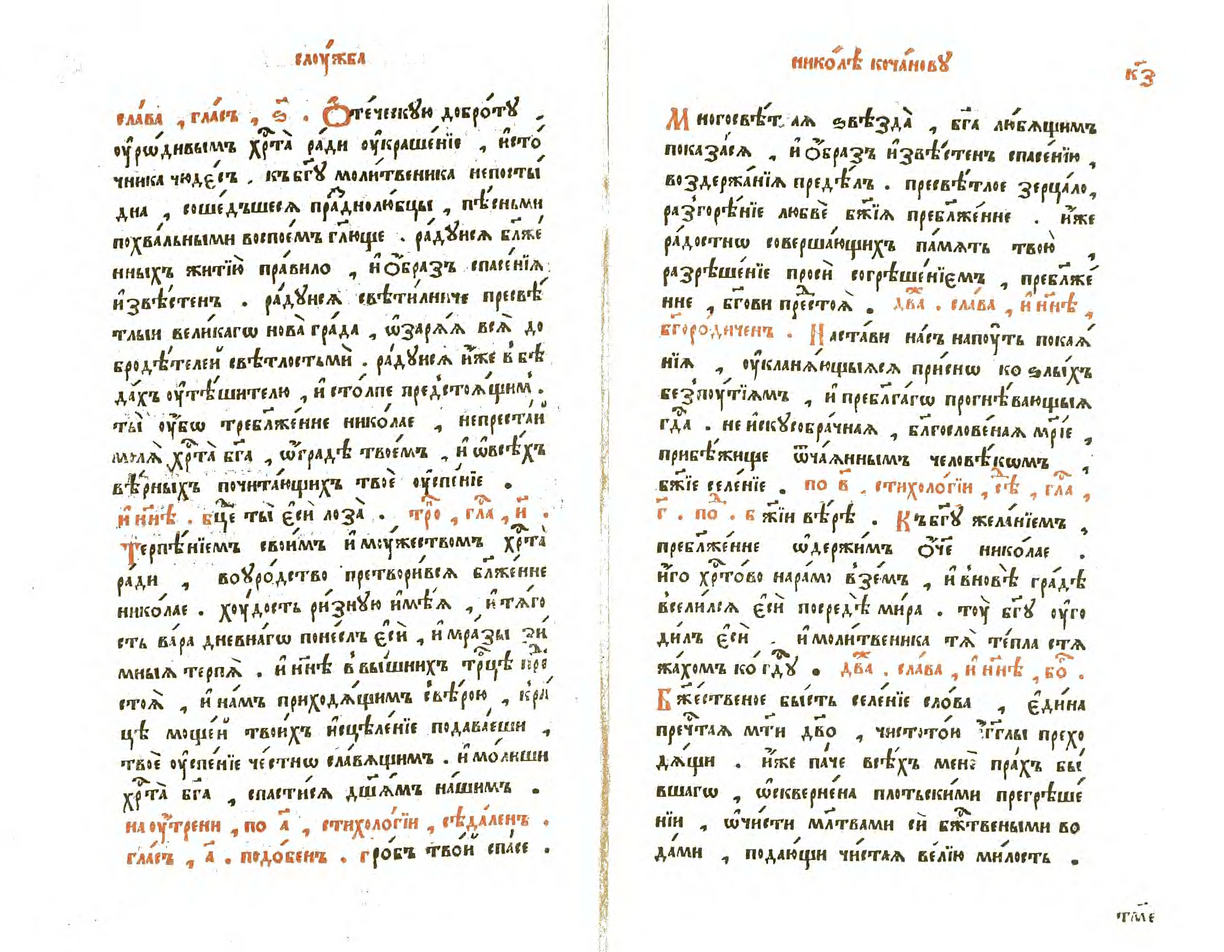 слоу́жба
сла́ва , гла́съ , ѕ҃ . Ѻ҆те́ческую добро́ту ,
оу҆рѡ́дивымъ хр҃та̀ ра́ди оу҆краше́нїе , и҆сто́
чника чюде́съ . къ бг҃у моли́твеника непосты́
дна , соше́дъшеся пра́днолюбцы , пѣ́сньми
похва́льными воспое́мъ гл҃юще . ра́дуися бл҃же́
нныхъ житїю̀ пра́вило , и҆ ѻ҆́бразъ спасе́нїя
и҆звѣ́стенъ . ра́дуися свѣти́лниче пресвѣ́
тлыи вели́кагѡ нова̀ гра́да , ѡ҆заря́я вся̀ до
бродѣ́телей свѣ́тлостьми . ра́дуися и҆́же в̾ бѣ
да́хъ оу҆тѣ́шителю , и҆ сто́лпе предстоя́щим̾ .
ты̀ оу҆́бѡ треблаже́нне нико́лае , непреста́и
моля̀ хр҃та̀ бг҃а , ѡ҆ гра́дѣ твое́мъ , и҆ ѡ҆ всѣ́хъ
вѣ́рныхъ почита́ющихъ твоѐ оу҆спе́нїе .
и҆ ны́нѣ . бц҃е ты̀ є҆сѝ лоза̀ . тро̑ , гла̑ , и҃ .
Терпѣ́нїемъ свои́мъ и҆ моу́жествомъ хр҃та̀
ра́ди , во ꙋро́дство претвори́вся бл҃же́нне
нико́лае . хоу́дость ри́зную и҆мѣ́я , и҆ тя́го
сть ва́ра дневна́гѡ поне́слъ є҆сѝ , и҆ мра́зы зи́
мныя терпя̀ . и҆ нн҃ѣ в̾ вы́шнихъ тр҃цѣ пре
стоя̀ , и҆ на́мъ приходя́щимъ с̾ вѣ́рою , к̾ ра́
цѣ моще́й твои́хъ и҆сцѣле́нїе подава́еши ,
твоѐ оу҆спе́нїе че́стнѡ сла́вящимъ . и҆ мо́лиши
хр҃та̀ бг҃а , спасти́ся дш҃а́мъ на́шимъ .
на оу҆́трени , по а҃ , стихоло́гїи , сѣда́ленъ .
гла́съ , а҃ . подо́бенъ . гро́бъ тво́й спа́се .
нико́лѣ коча́новꙋ
к҃з
Многосвѣ́т ая ѕвѣзда̀ , бг҃а лю́бящимъ
показа́ся , и҆ ѻ҆́бразъ и҆звѣ́стенъ спасе́нїю ,
воздержа́нїя предѣ́лъ . пресвѣ́тлое зерца́ло ,
разгорѣ́нїе любвѐ бж҃їя пребл҃же́нне . и҆́же
ра́достнѡ соверша́ющихъ па́мять твою̀ ,
разрѣше́нїе просѝ согрѣше́нїемъ , пребл҃же́
нне , бг҃ови пре́стоя̀ . два́ж̑ . сла́ва , и҆ нн҃ѣ ,
бг҃оро́диченъ . Наста́ви на́съ на поу́ть покая́
нїя , оу҆кланя́ющыяся при́снѡ ко ѕлы́хъ
безпоу́тїямъ , и҆ пребл҃га́гѡ прогнѣ́вающыя
гд҃а . не и҆скусобра́чная , бл҃гослове́ная мр҃і́е ,
прибѣ́жище ѿча́яннымъ человѣ́кѡмъ ,
бж҃їе селе́нїе . по в҃ . стихоло́гїи , сѣ̑ , гла̑ ,
г҃ . по̑ . бж҃їи вѣ́рѣ . Къ бг҃у жела́нїемъ ,
пребл҃же́нне ѡ҆держи́мъ ѻ҆́ч҃е нико́лае .
и҆́го хр҃то́во на ра́мо в̾зе́мъ , и҆ в̾ но́вѣ гра́дѣ
всели́лся є҆сѝ посредѣ̀ ми́ра . тоу̀ бг҃у оу҆го
ди́лъ є҆сѝ . и҆ моли́твеника тя̀ те́пла стя
жа́хомъ ко гд҃у . два́ж̑ . сла́ва , и҆ нн҃ѣ , бо̑ .
Бж҃е́ственое бы́сть селе́нїе сло́ва , є҆ди́на
пречт҃ая мт҃и дв҃о , чистото́и а҆́гг҃лы прехо
дя́щи . и҆́же па́че всѣ́хъ менѐ пра́хъ бы́
вшагѡ , ѡ҆скверне́на пло́тьскими прегрѣше́
нїи , ѡ҆чи́сти мл҃твами си́ бж҃твеными во
да́ми , подаю́щи чи́стая ве́лїю ми́лость .
тм҃е